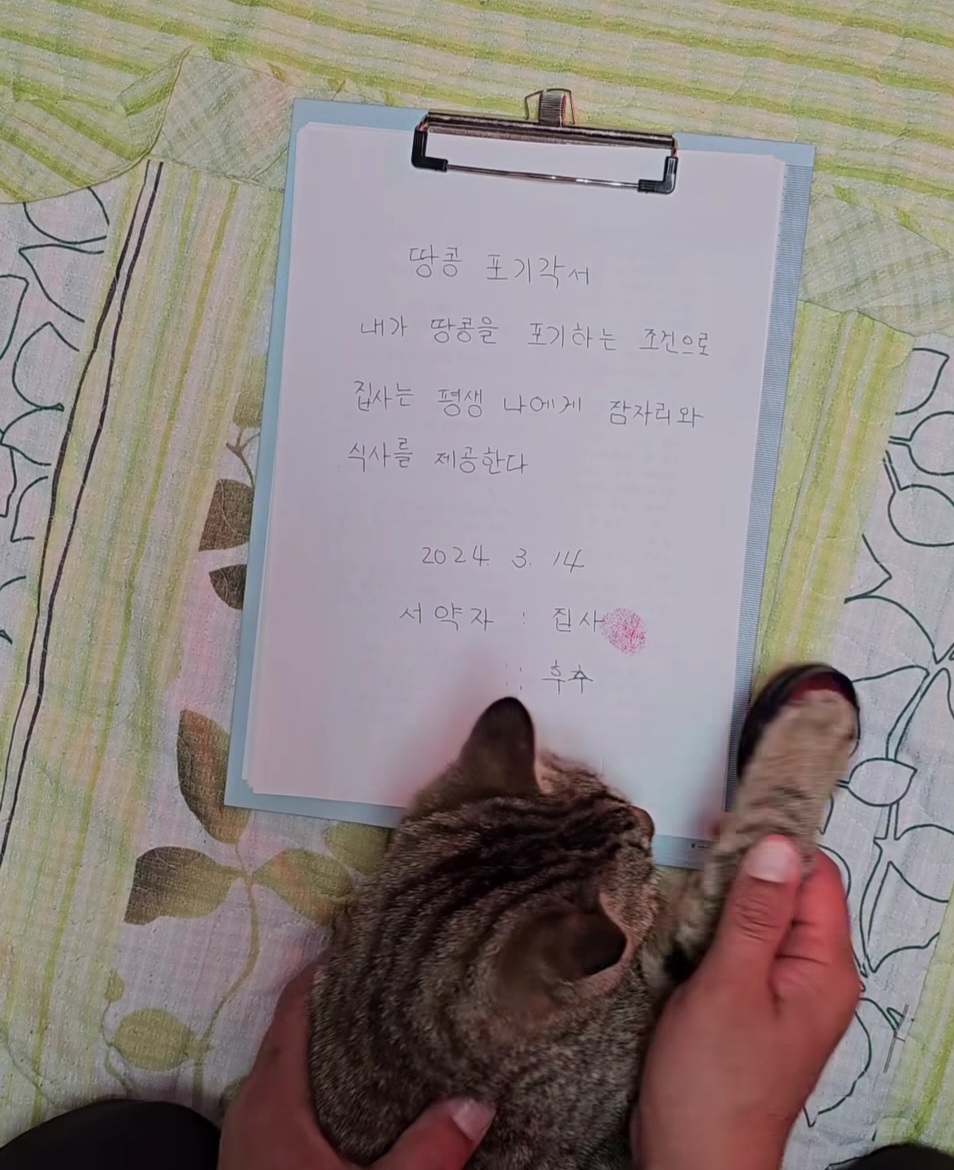 땅콩 포기각서
내가 땅콩을 포기하는 조건으로
집사는 평생 나에게 잠자리와
식사를 제공한다
2024. 3. 14
서약자 : 집사
: 후추